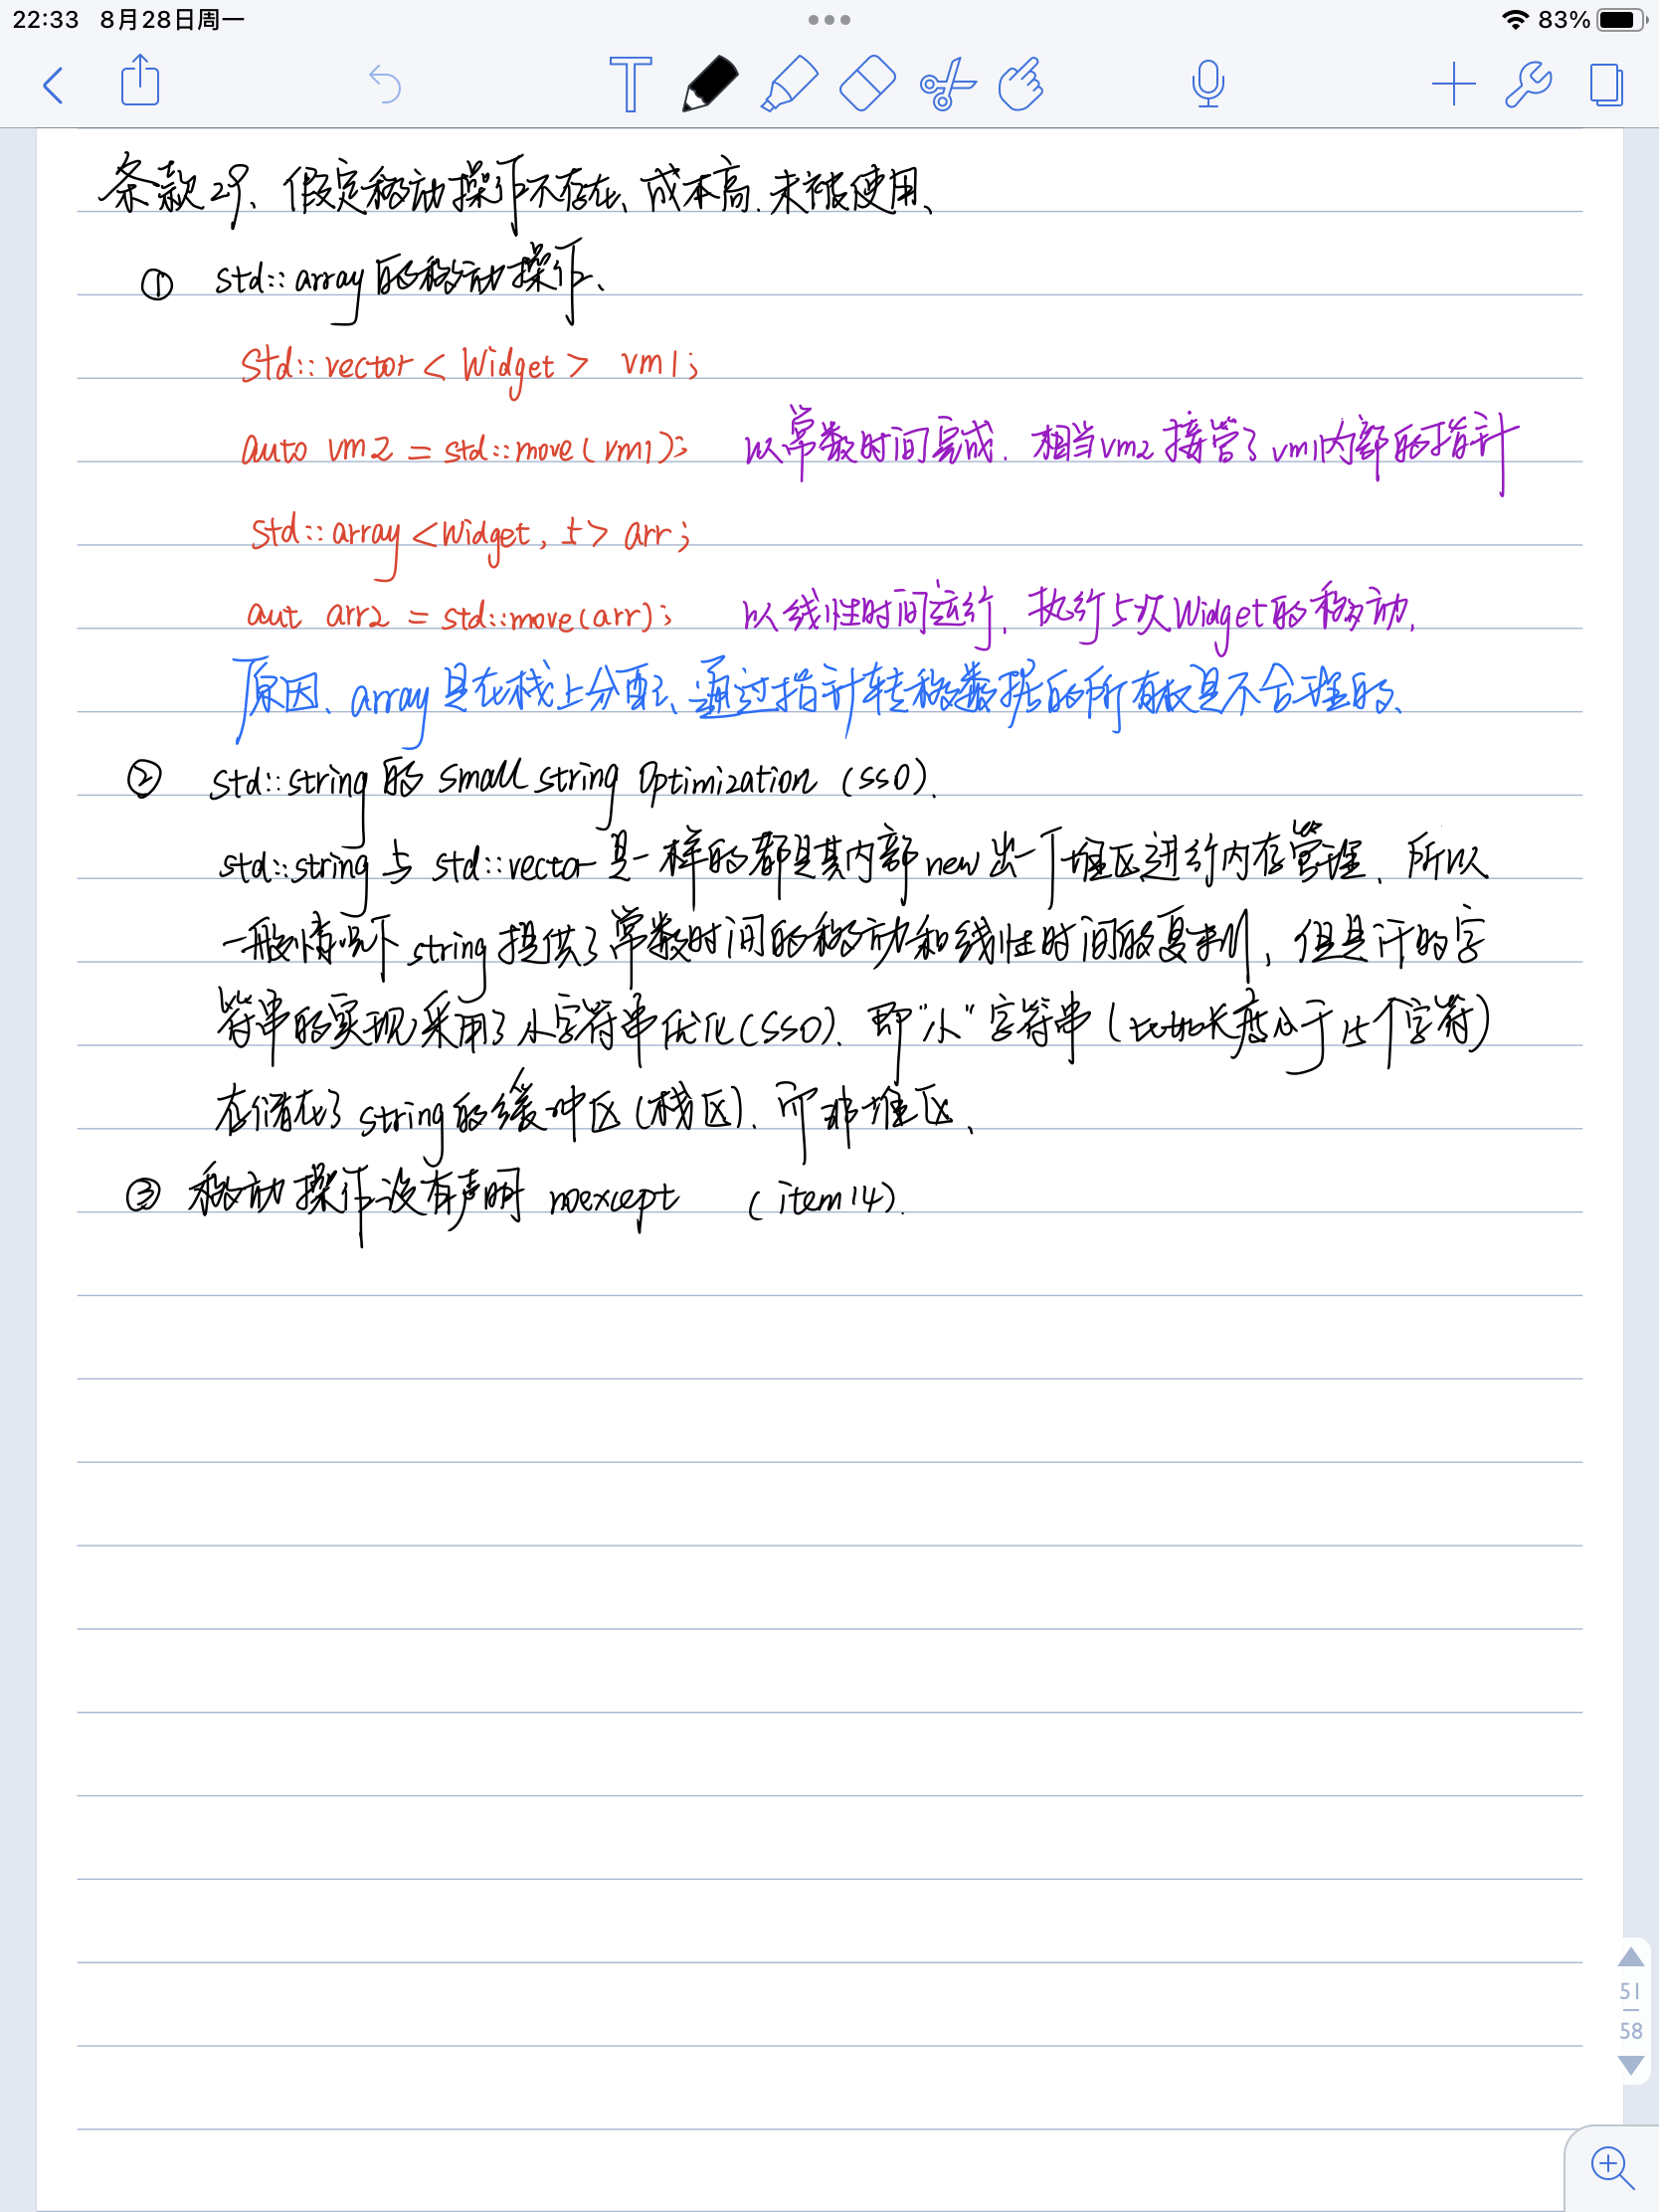 22:33 8月28日周一
83%
条款29、假定移动操作不存在、成本高.未被使用、
① std::array的移动操作、
std::vector<Widget> vm1;
auto vm2 = std::move(vm1); 以常数时间完成.相当vm2接管了vm1内部的指针
std::array<Widget, 5> arr;
aut arr2 = std::move(arr); 以线性时间运行.执行5次Widget的移动.
原因、array是在栈上分配、通过指针转移数据的所有权是不合理的、
② std::string的 small string Optimization (SSO).
std::string与 std::vector是一样的都是其内部new出一个堆区进行内存管理.所以
一般情况下string提供了常数时间的移动和线性时间的复制,但是许的字
符串的实现采用了小字符串优化(SSO).即"小"字符串(比如长度小于15个字符)
存储在了string的缓冲区(栈区).而非堆区、
③ 移动操作没有声明 noexcept (item14).
51
58